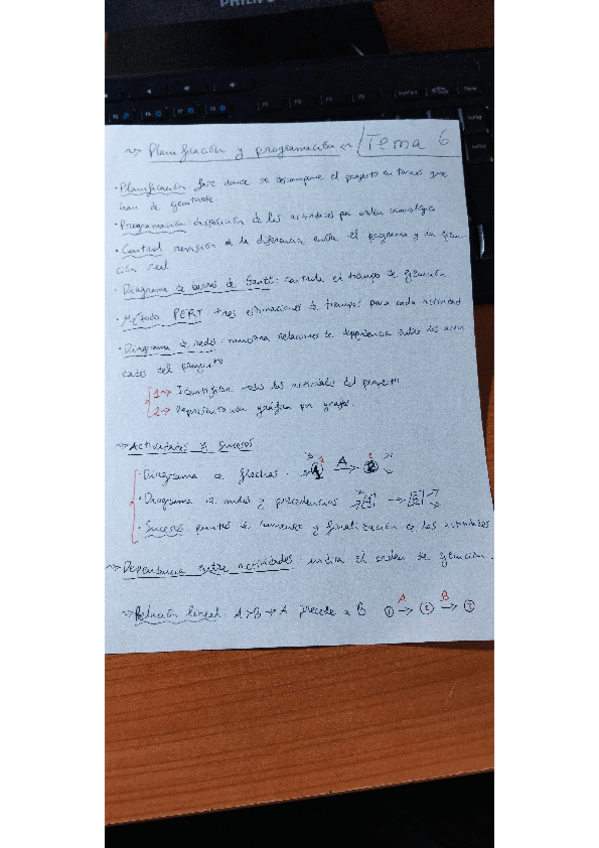 PHILIPS
~> Planificación y programación ~ Tema 6
· Planificación fase donde se descompone el proyecto en tareas que
han de ejecutarse
· Programación: disposición de las actividades por orden cronológico
· Control revisión de la diferencia entre el programa y la ejecu-
ción real
· Diagrama de barras de Gantt: controla el tiempo de ejecución
· Método PERT tres estimaciones de tiempos para cada actividad
· Diagrama de redes: muestra relaciones de dependencia entre las activi
dades del proyecto
1 -> Identificar todas las actividades del proyecto
2 -> Representación gráfica por grafos.
~> Actividades y sucesos
· Diagrama de flechas. 1 A 2
· Diagrama de nodos y precedencias
· Sucesos: puntos de comienzo y finalización de las actividades
~> Dependencia entre actividades: indica el orden de ejecución.
~> Relación lineal: A>B -> A precede a B 1 A 2 B 3